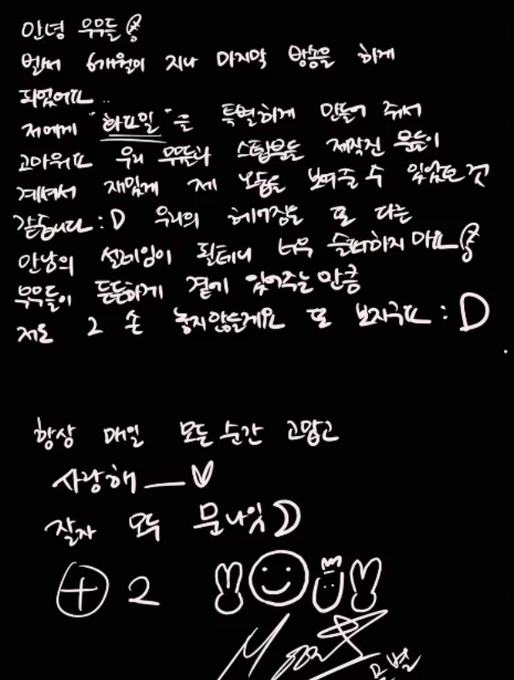 안녕 무무들
벌써 6개월이 지나 마지막 방송을 하게
되었어요..
저에게 "화요일"을 특별하게 만들어 줘서
고마워요 우리 무무들과 스탭분들 제작진 분들이
계셔서 재밌게 제 모습을 보여줄 수 있었던 것
같습니다 :D 우리의 헤어짐은 또 다른
만남의 설레임이 될테니 너무 슬퍼하지 마요
무무들이 든든하게 곁에 있어주는 만큼
저도 그 손 놓지않을게요 또 보자구요 :D
항상 매일 모든 순간 고맙고
사랑해 ㅡ♡
잘자 모두 문나잇
+ 2
문별